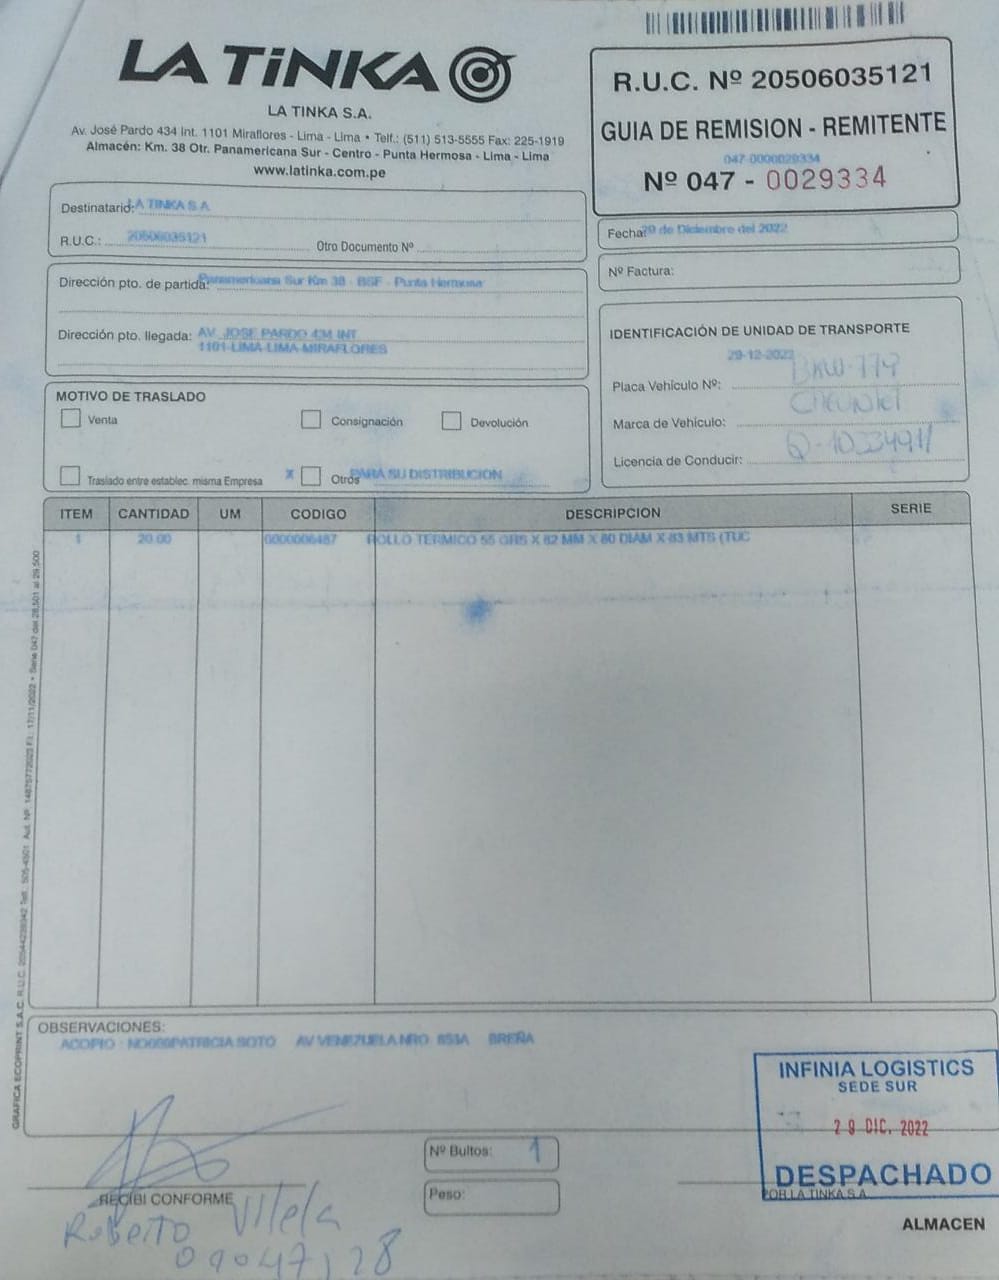 LA TiNKA
LA TINKA S.A.
Av. José Pardo 434 Int. 1101 Miraflores - Lima - Lima • Telf.: (511) 513-5555 Fax: 225-1919
Almacén: Km. 38 Otr. Panamericana Sur - Centro - Punta Hermosa - Lima - Lima
www.latinka.com.pe
R.U.C. Nº 20506035121
GUIA DE REMISION - REMITENTE
047-0000029334
Nº 047 - 0029334
Destinatario: LA TINKA S.A.
R.U.C.: 20506035121 Otro Documento Nº
Fecha: 29 de Diciembre del 2022
Nº Factura:
Dirección pto. de partida: Panamericana Sur Km 38 - BSF - Punta Hermosa
Dirección pto. llegada: AV. JOSE PARDO 434 INT
1101-LIMA-LIMA-MIRAFLORES
IDENTIFICACIÓN DE UNIDAD DE TRANSPORTE
29-12-2022
Placa Vehículo Nº:
Marca de Vehículo: Chevrolet
Licencia de Conducir:
MOTIVO DE TRASLADO
Venta Consignación Devolución
Traslado entre establec. misma Empresa X Otros PARA SU DISTRIBUCION
ITEM CANTIDAD UM CODIGO DESCRIPCION SERIE
1 20.00 0000006487 ROLLO TERMICO 55 GRS X 82 MM X 80 DIAM X 83 MTS (TUC
OBSERVACIONES:
ACOPIO : PATRICIA SOTO AV VENEZUELA NRO BREÑA
INFINIA LOGISTICS
SEDE SUR
29 DIC. 2022
DESPACHADO
POR LA TINKA S.A.
ALMACEN
Nº Bultos: 1
Peso:
RECIBI CONFORME
Roberto Vilela
GRAFICA ECOPRINT S.A.C.